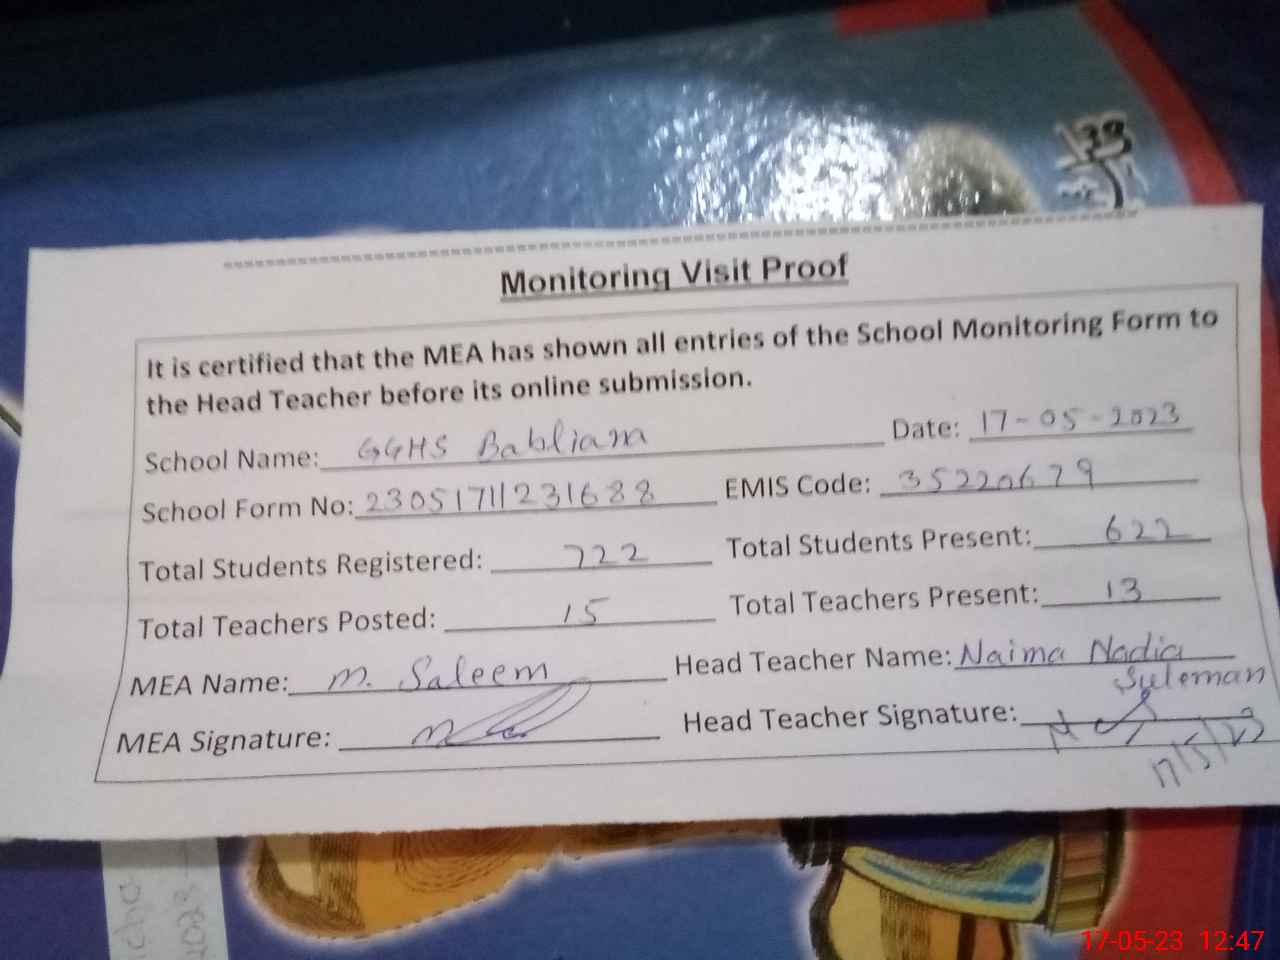 39
Monitoring Visit Proof
It is certified that the MEA has shown all entries of the School Monitoring Form to
the Head Teacher before its online submission.
School Name: GGHS Babliana Date: 17-05-2023
School Form No: 23051711231688 EMIS Code: 35220679
Total Students Registered: 722 Total Students Present: 622
Total Teachers Posted: 15 Total Teachers Present: 13
MEA Name: M. Saleem Head Teacher Name: Naima Nadia
Suleman
MEA Signature: Head Teacher Signature:
17/5/23
17-05-23 12:47